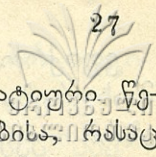 27
ატიური წე-
ბისა, რასაც